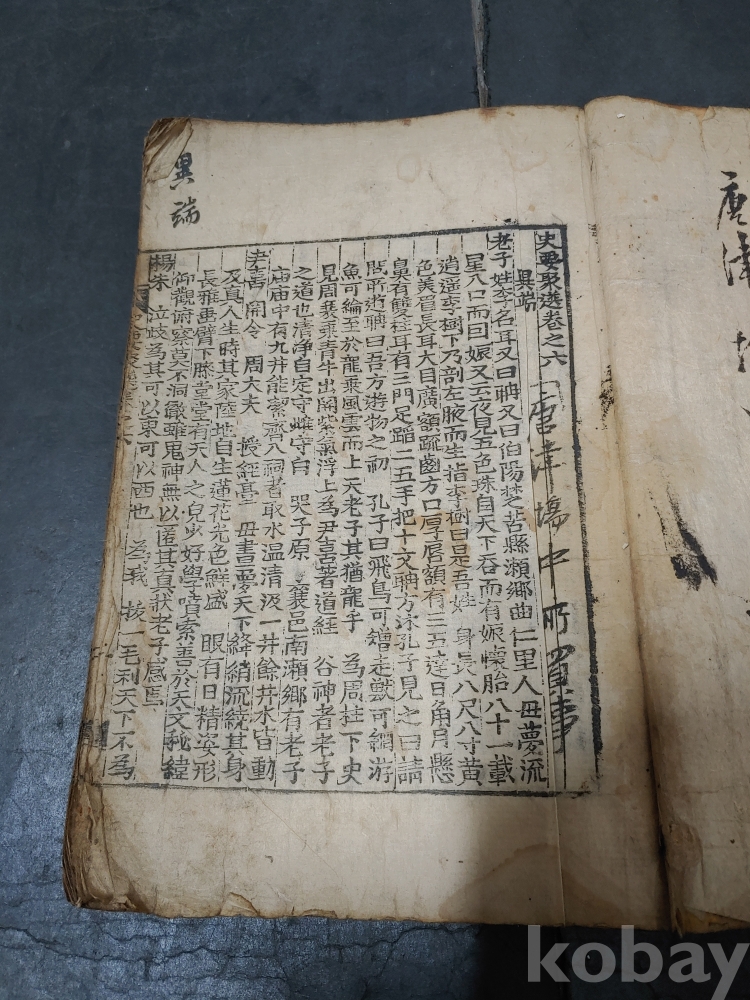 異端
史要聚選卷之六
唐津場中所買事
異端
老子姓李名耳又曰聃又曰伯陽楚苦縣瀨鄉曲仁里人母夢流
星入口而曰娠又云夜見五色珠自天下吞而有娠懷胎八十一載
逍遥李樹下乃剖左腋而生指李樹曰是吾姓 身長八尺八寸黃
色美眉長耳大目廣額疏齒方口厚唇額有三五達日角月懸
鼻有雙柱耳有三門足蹈二五手把十文聃方沐孔子見之曰請
問所遊聃曰吾方遊物之初 孔子曰飛鳥可矰走獸可網游
魚可綸至於龍乘風雲而上天老子其猶龍乎 爲周柱下史
見周衰乘青牛出關紫氣浮上爲尹喜著道經 谷神者老子
之道也清浄自定守雌守白 哭子原 襄邑南瀨鄉有老子
庙庙中有九井能潔齊入祠者取水温清汲一井餘井水皆動
尹喜 関令 周大夫 授經臺 母晝夢天下絳綃流繞其身
及真人生時其家陸地自生蓮花光色鮮盛 眼有日精姿形
長雅垂臂下膝堂堂有天人之皃少好學墳索善於天文秘緯
仰觀俯察莫不洞徹雖鬼神無以匿其真狀老子感焉
楊朱 泣歧爲其可以東可以西也 爲我 拔一毛利天下不爲
唐津